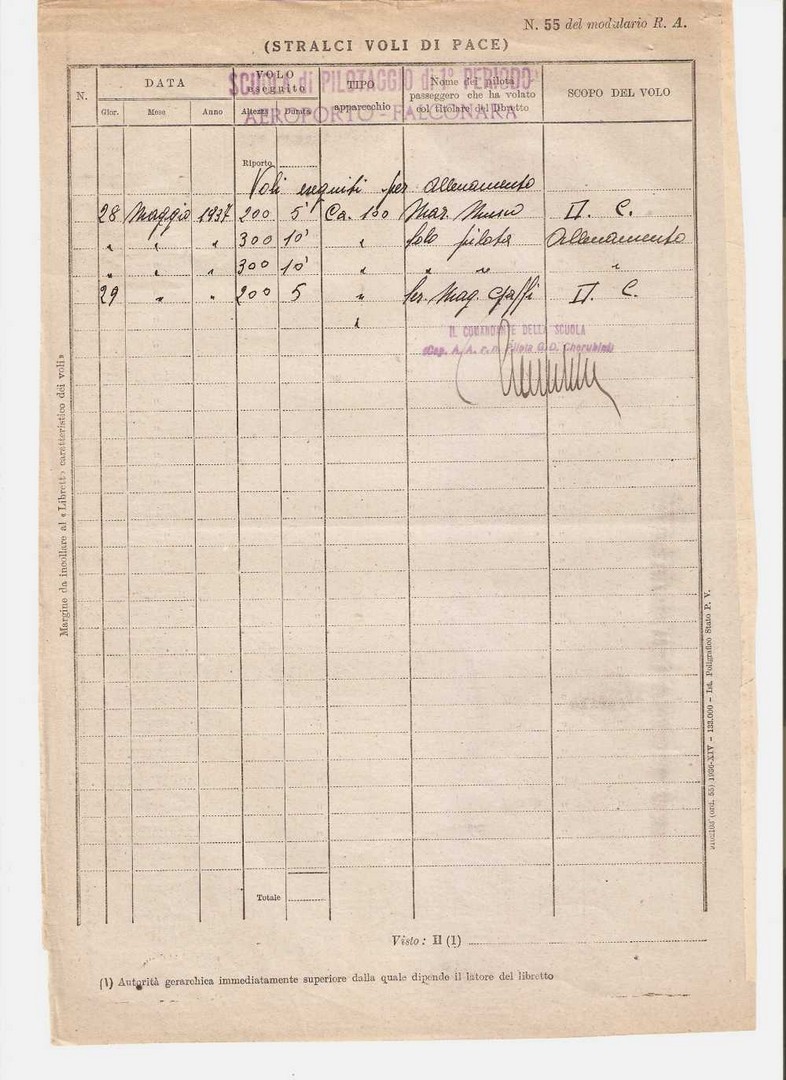 N. 55 del modulario R. A.
(STRALCI VOLI DI PACE)
N. DATA VOLO eseguito TIPO apparecchio Nome del pilota passeggero che ha volato col titolare del libretto SCOPO DEL VOLO
Gior. Mese Anno Altezza Durata
SCUOLA di PILOTAGGIO di 1° PERIODO
AEROPORTO - FALCONARA
Riporto
Voli eseguiti per allenamento
28 Maggio 1937 200 5' Ca. 100 Mar. II. C.
" " " 300 10' " Solo pilota Allenamento
" " " 300 10' " " " "
29 " " 200 5 " Ser. Mag. II. C.
"
IL COMANDANTE DELLA SCUOLA
Pilota G.D. Cherubini
Totale
Visto: Il (1)
(1) Autorità gerarchica immediatamente superiore dalla quale dipende il latore del libretto
Margine da incollare al «Libretto caratteristico dei voli»
(ord. 55) 1936-XIV - 133.000 - Ist. Poligrafico Stato P. V.